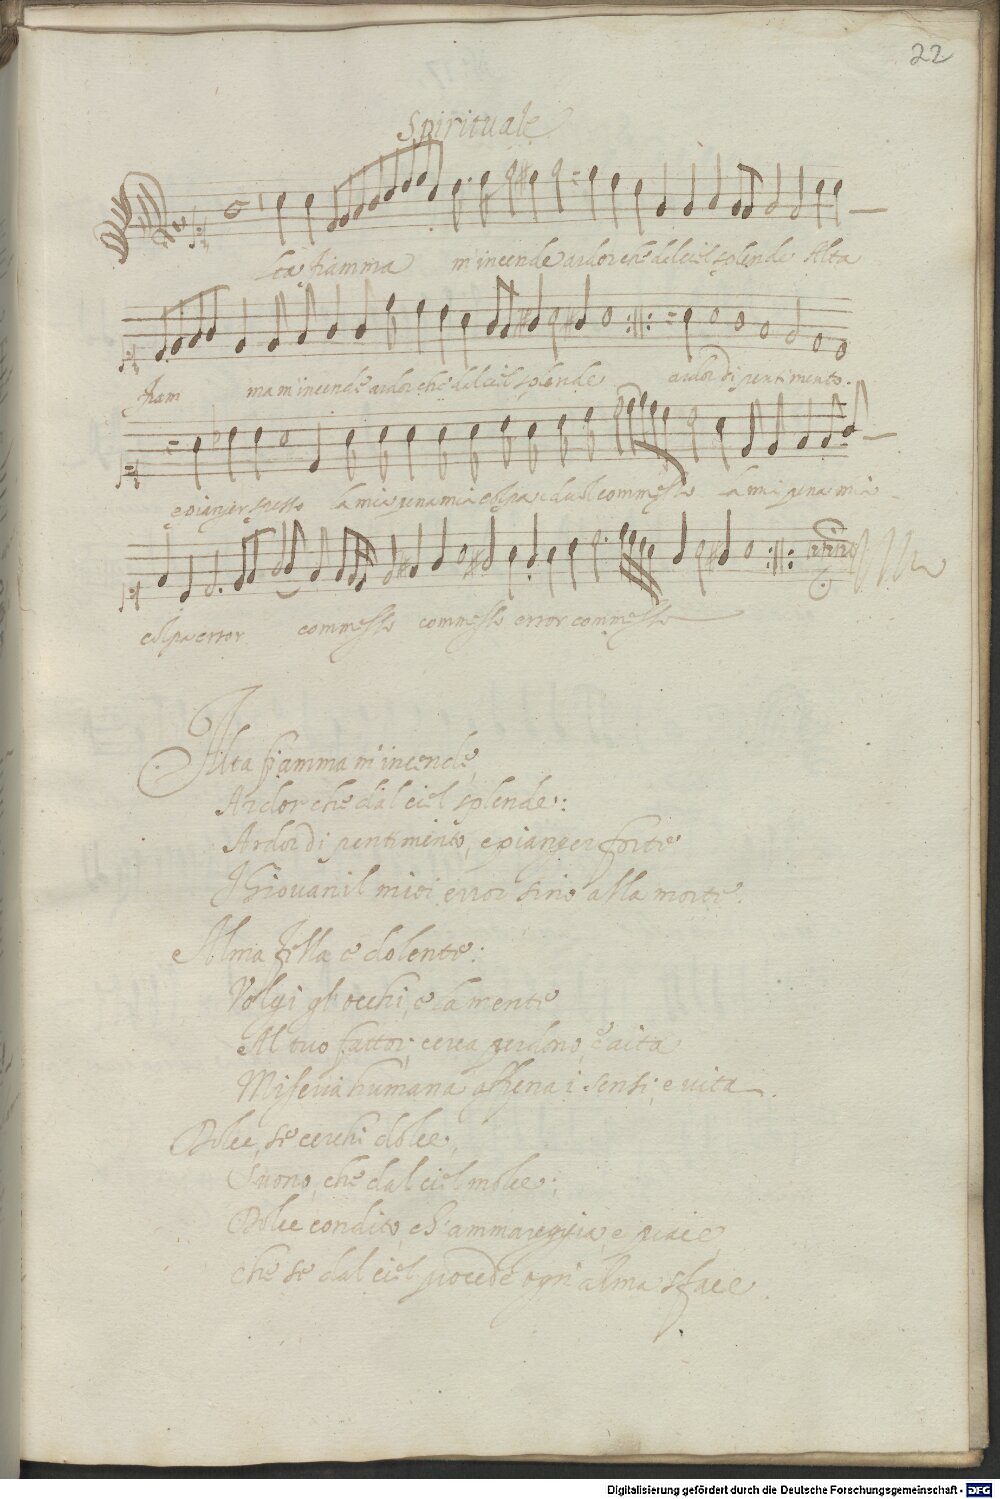 22
Spirituale
Alta fiamma m'incende ardor che dal ciel splende Alta
fiam ma m'incende ardor che dal ciel splende ardor di pentimento.
e pianger spesso la mia pena mia colpa e duol commesso la mia pena mia
colpa error commesso commesso error commesso
Alta fiamma m'incende,
Ardor che dal ciel splende:
Ardor di pentimento, e pianger forte
I Giovanil miei error sino alla morte.
Alma fella e dolente:
Volgi gl'occhi, e la mente
Al tuo fattor; cerca perdono, e aita
Miseria humana affrena i sensi, e vita.
Dolce, se cerchi dolce,
Suono, che dal ciel molce;
Dolce condito, ch'ammareggia, e piace,
Che se dal ciel procede ogn'alma sface.
Digitalisierung gefördert durch die Deutsche Forschungsgemeinschaft - DFG